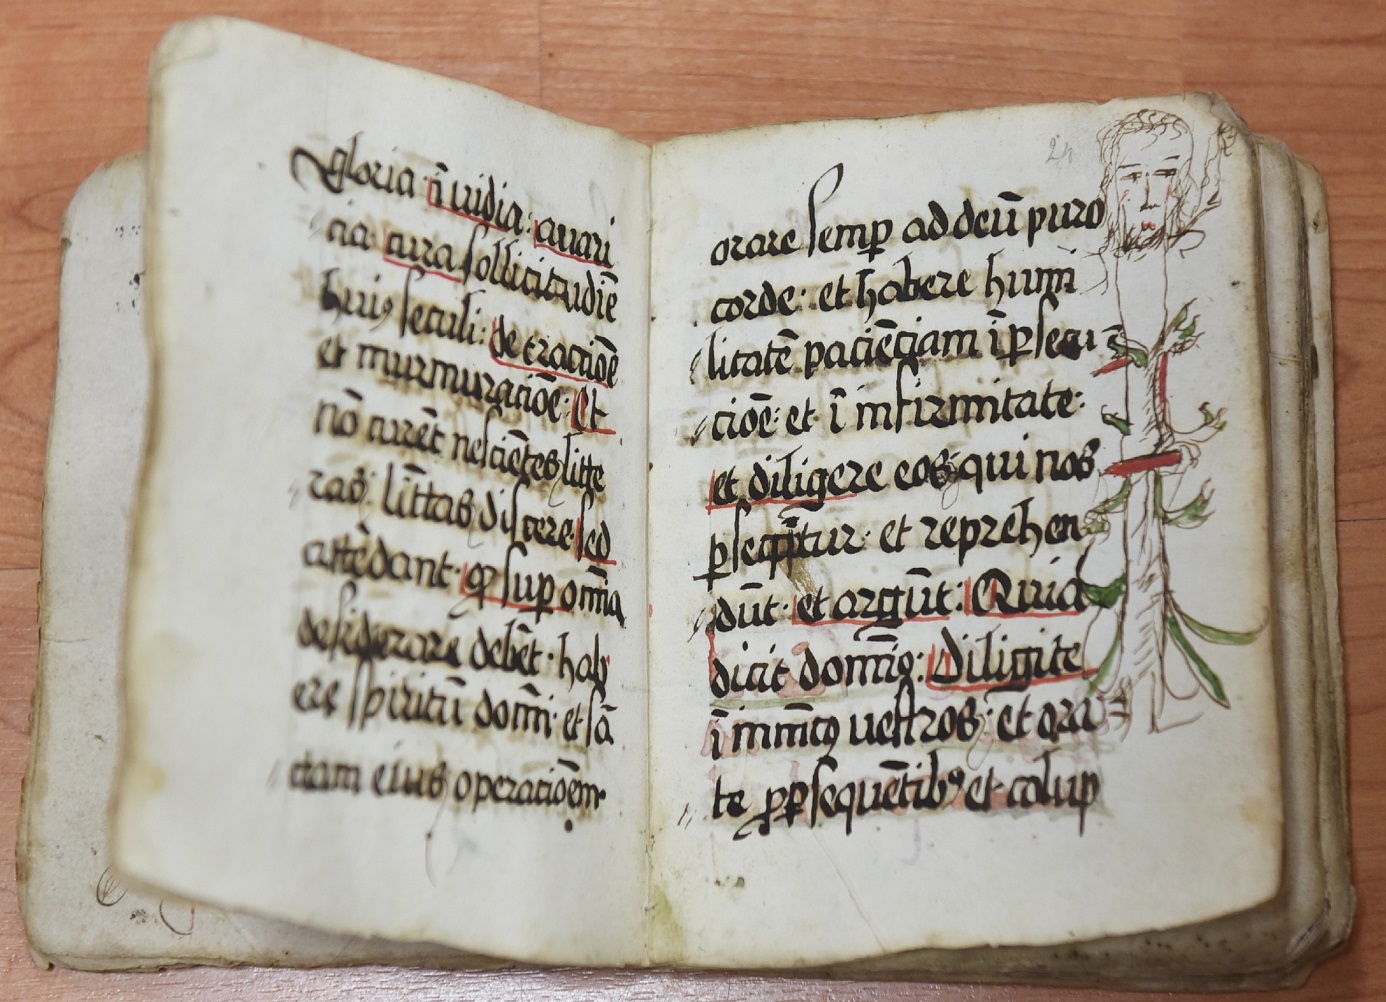 gloria· īuidia: auari
cia· cura sollicitudīe
huiꝰ seculi: detractiōe
et murmuraciōe· Et
nō curēt nesciētes litte
ras: līttas discere· sed
attēdant· qꝫ sup̱ om̄ia
desiderare debēt· hab
ere spiritū dom̄i· et sā
ctam eius operaciōem·
24
orare semp̱ ad deū puro
corde: et habere humi
litatē paciēciam ī p̱secu
cioē: et ī infirmitate:
et diligere eos: qui nos
p̱secūtur· et reprehen
dūt· et argūt: Quia
dicit dom̄iꝰ: Diligite
īnim̄icꝰ uestros: et ora
te p̱ p̱sequētibꝰ et calup